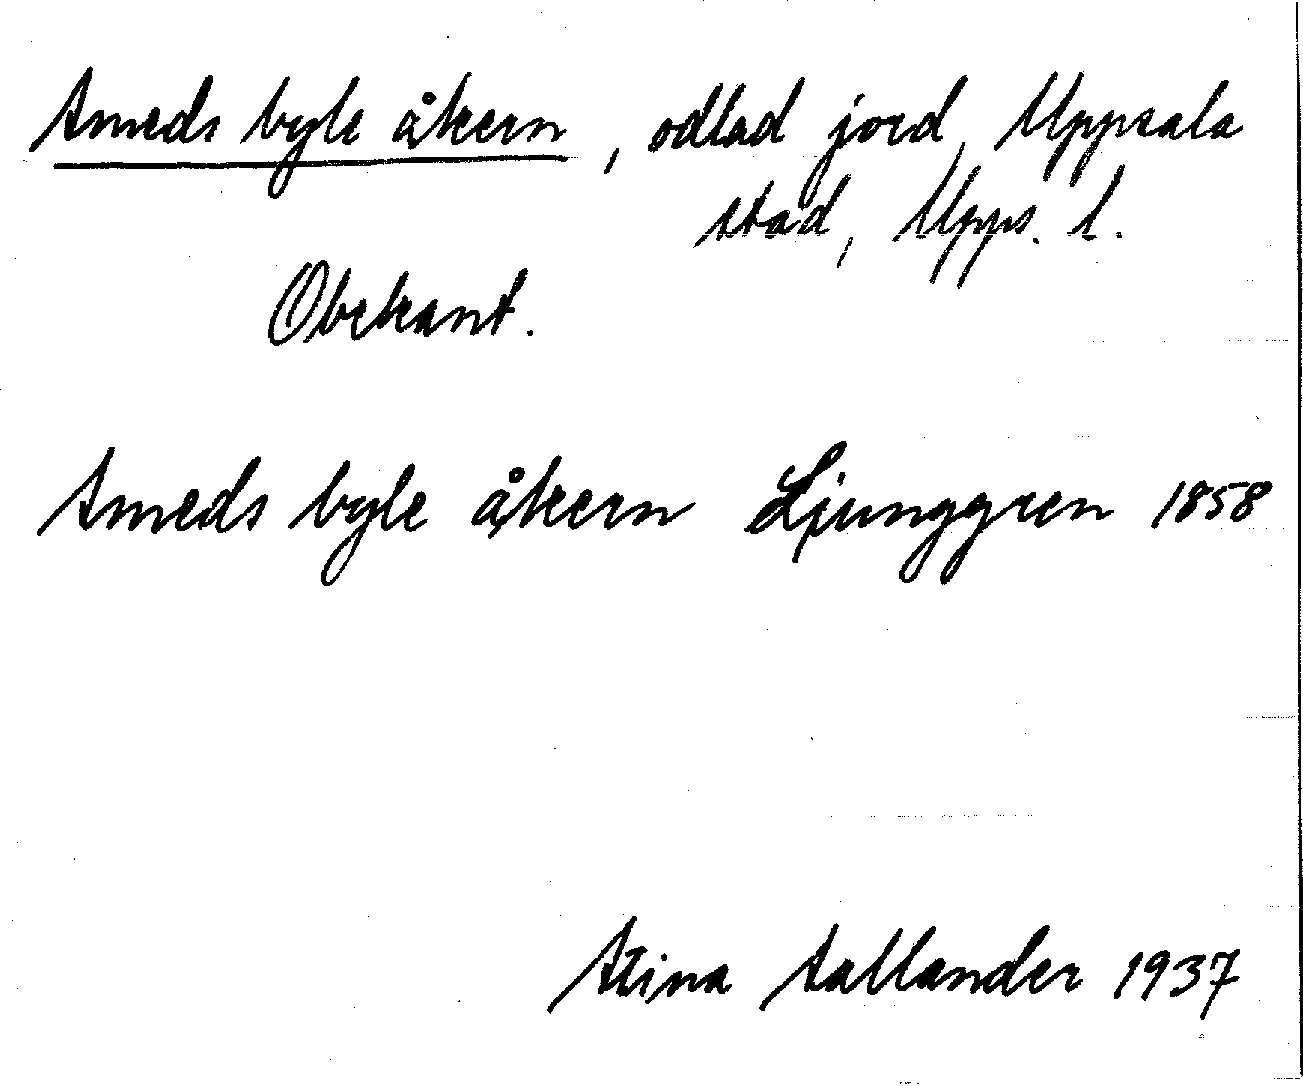 Smeds byle åkern, odlad jord, Uppsala
stad, Upps. l.
Obekant.
Smeds byle åkern Ljunggren 1858
Stina Sallander 1937